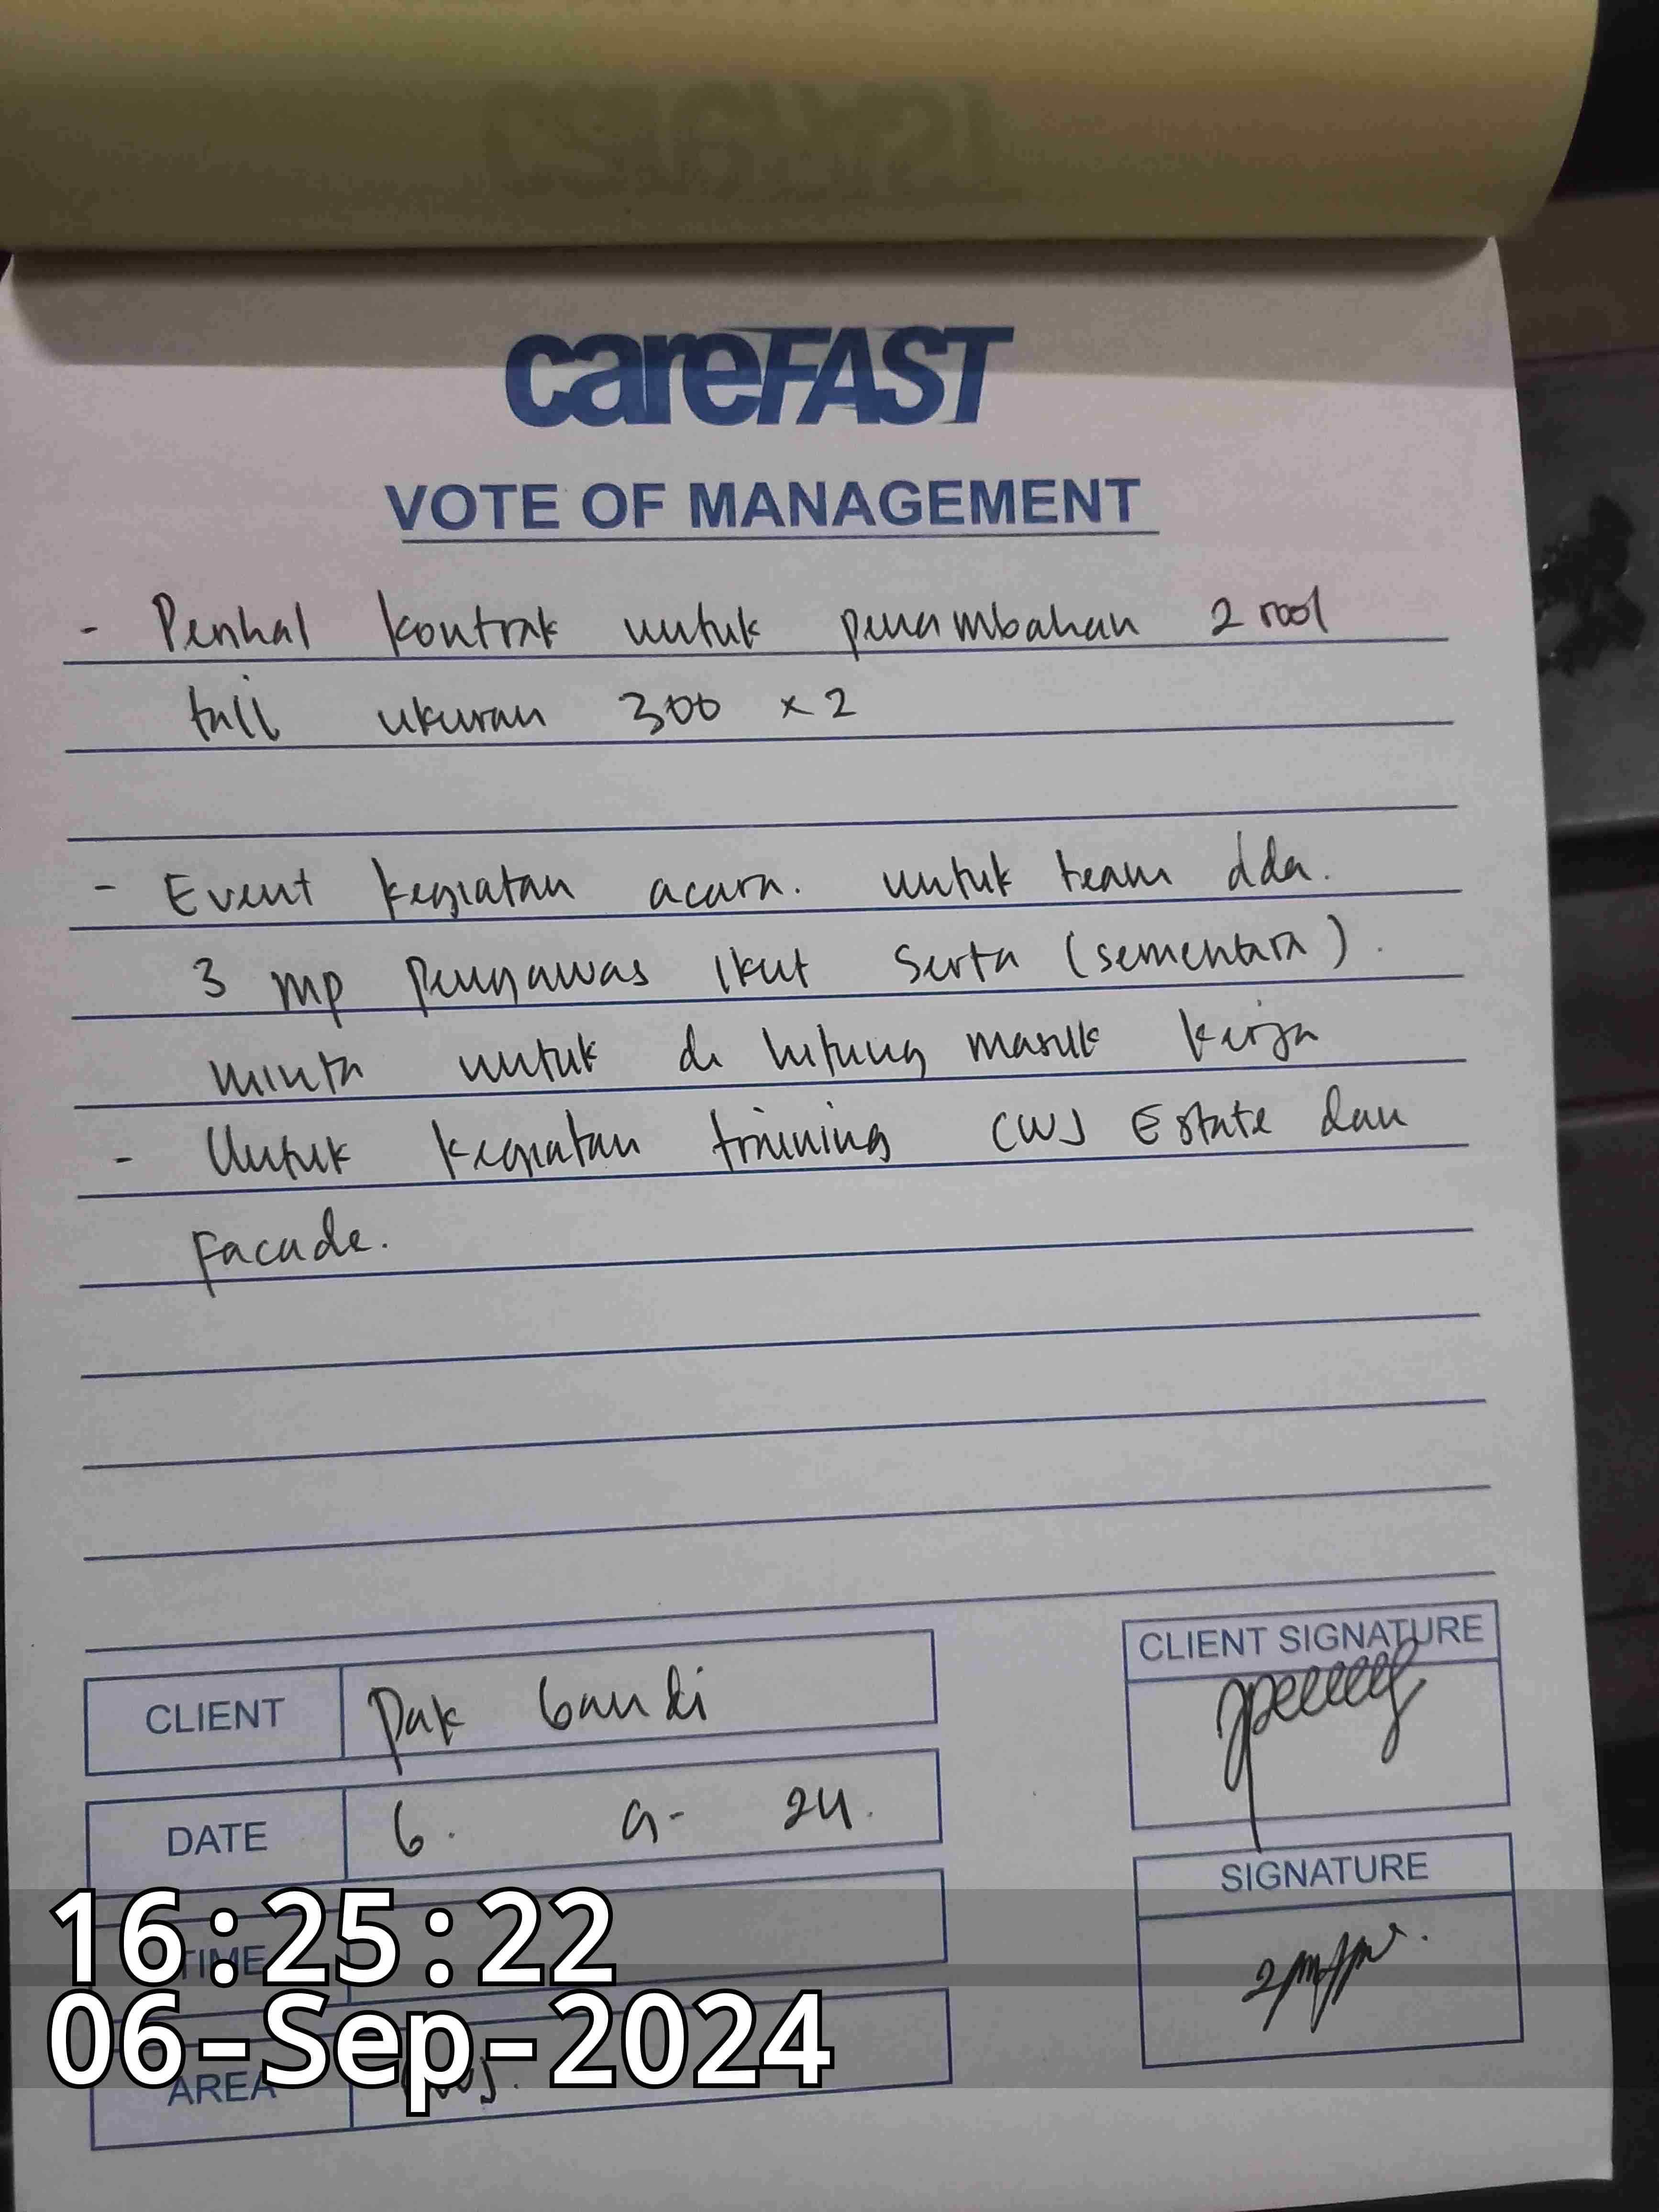 careFAST
VOTE OF MANAGEMENT
- Perihal kontrak untuk penambahan 2 rool
tali ukuran 300 x 2
- Event kegiatan acara. untuk team dda.
3 mp pengawas ikut serta (sementara).
minta untuk di hitung masuk kerja
- Untuk kegiatan training CWJ Estate dan
Facade.
CLIENT Pak Gandi
CLIENT SIGNATURE
DATE 6. 9- 24.
SIGNATURE
TIME
AREA
16:25:22
06-Sep-2024